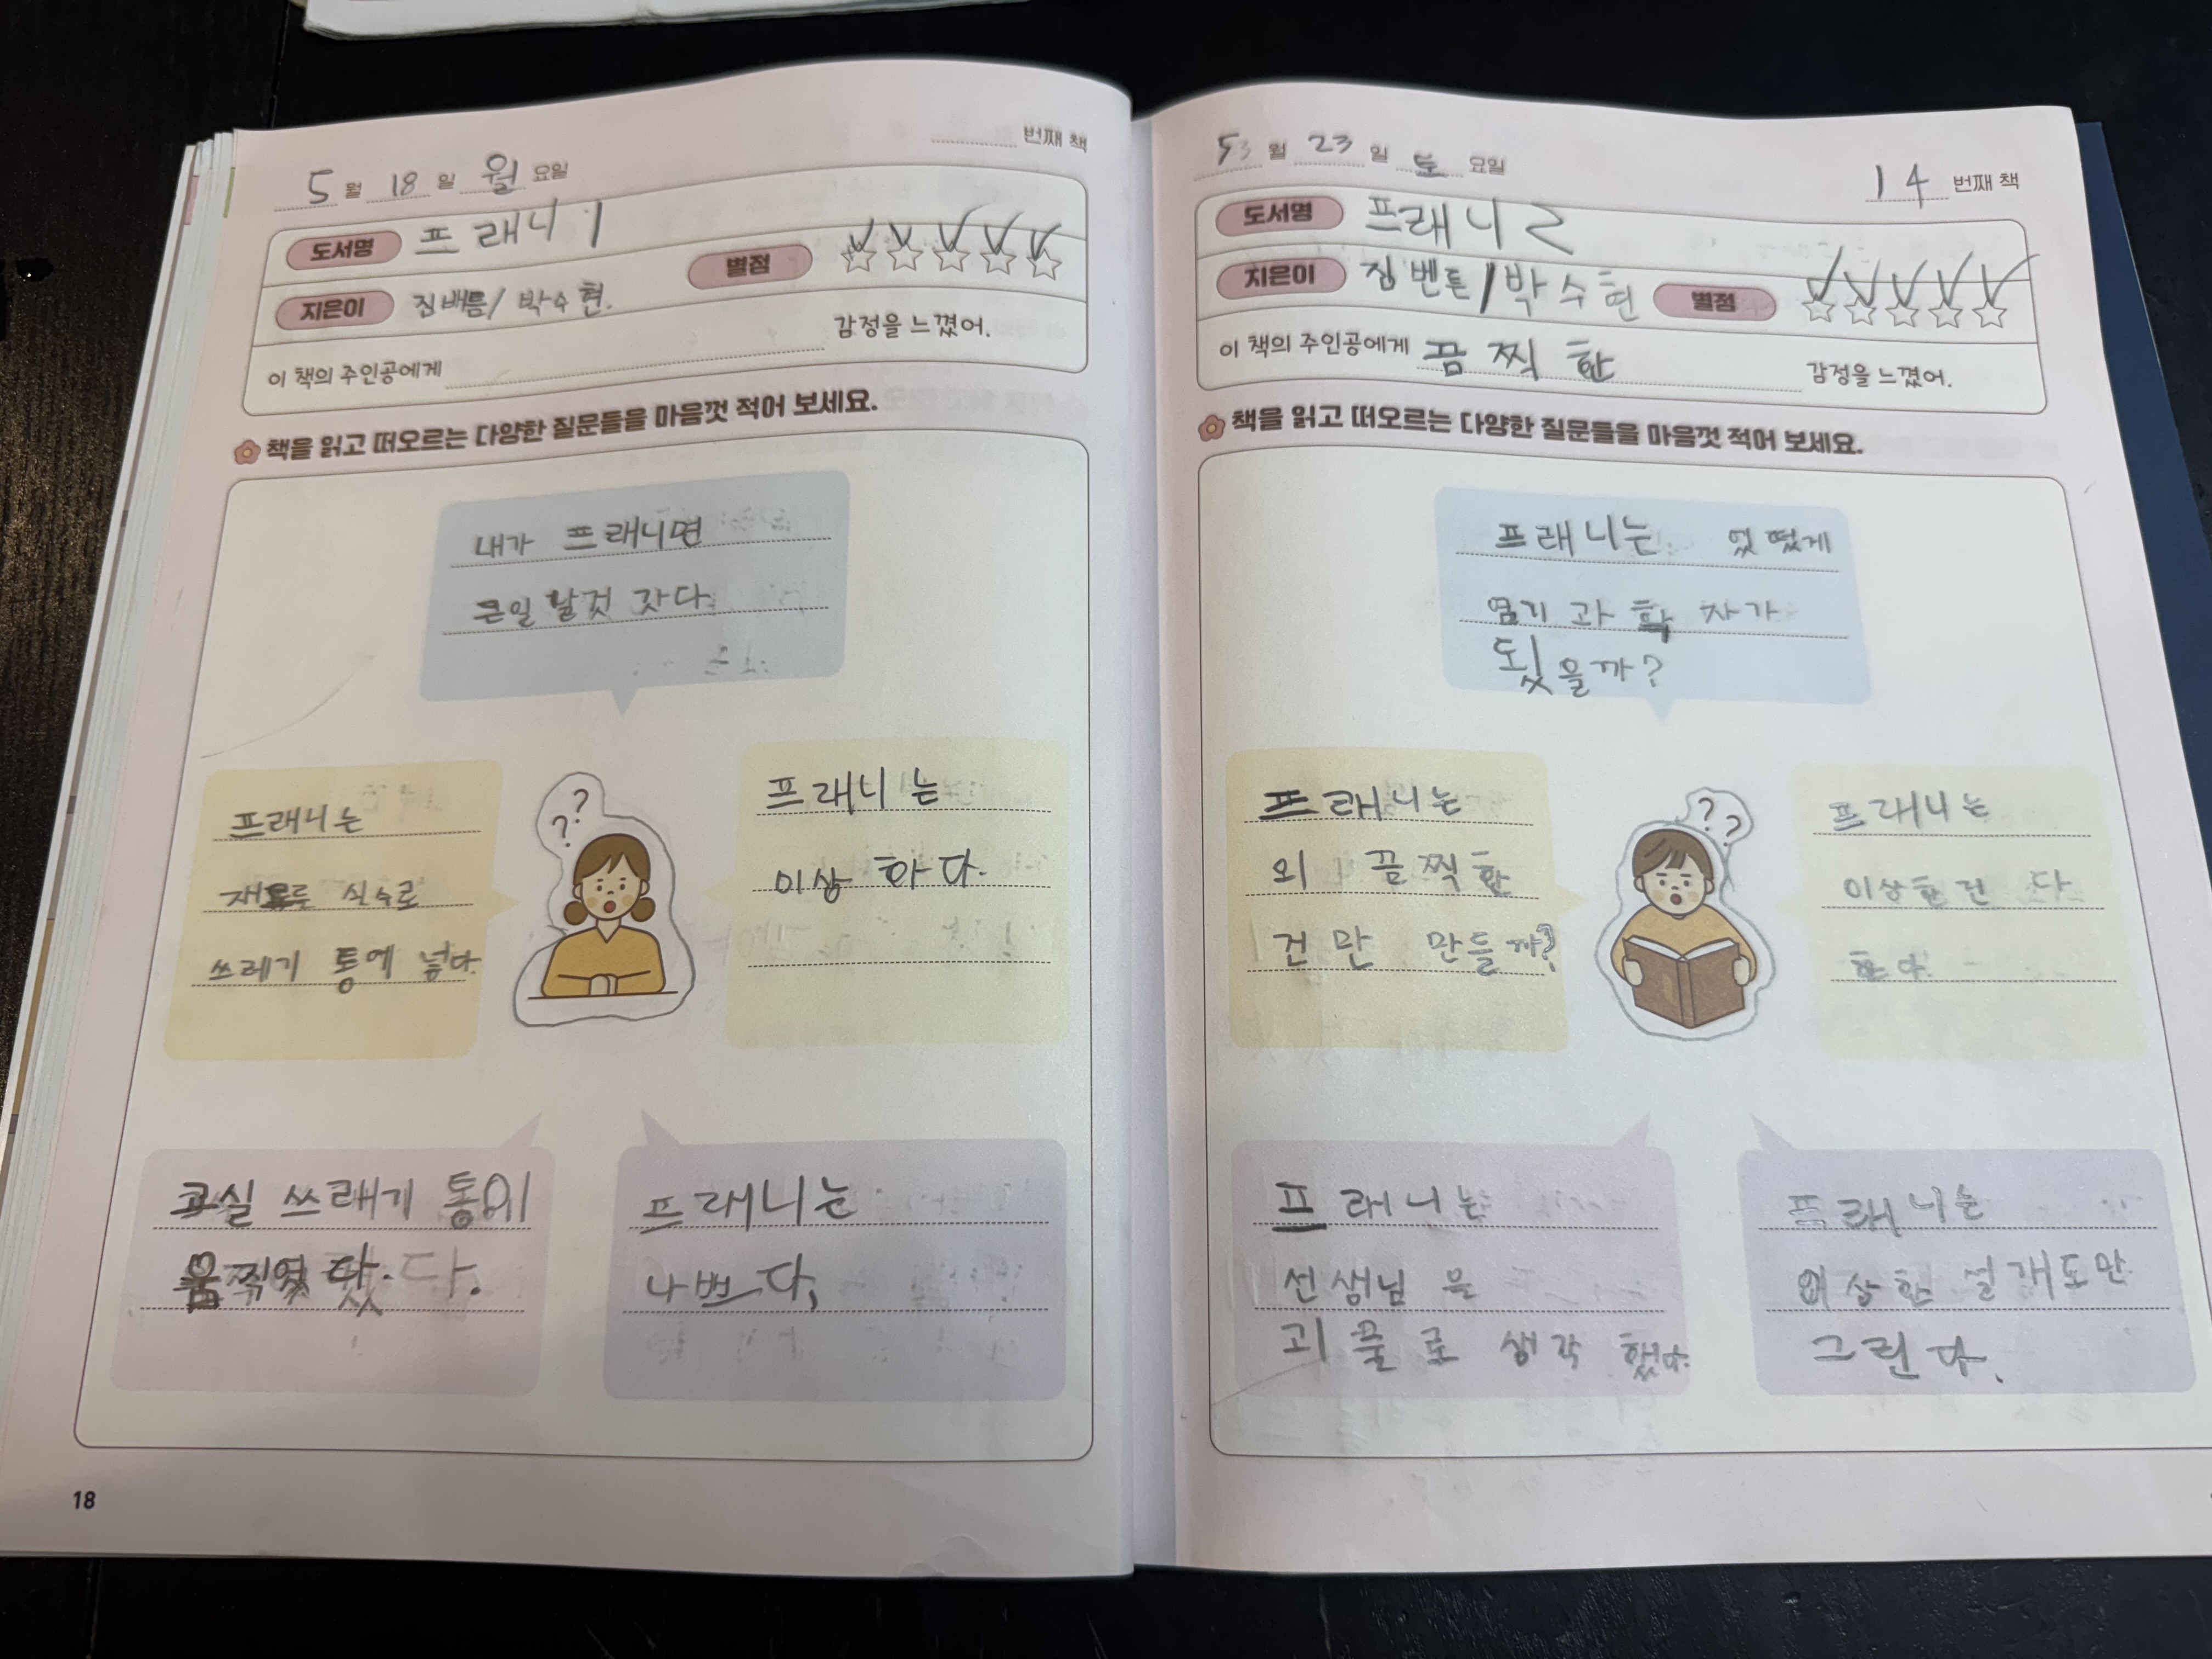 번째 책
5 월 18 일 월 요일
도서명 프래니 1
별점
지은이 짐배튼/ 박수현.
이 책의 주인공에게 감정을 느꼈어.
책을 읽고 떠오르는 다양한 질문들을 마음껏 적어 보세요.
내가 프래니면
큰일 날것 갓다.
프래니는
실수로
쓰레기 통에 넣다.
??
프래니는
이상 하다.
교실 쓰래기 통이
움찍였다.
프래니는
나쁘다,
18
5 월 23 일 토 요일
14 번째 책
도서명 프래니 2
지은이 짐 벤튼/박수현 별점
이 책의 주인공에게 끔찍한 감정을 느꼈어.
책을 읽고 떠오르는 다양한 질문들을 마음껏 적어 보세요.
프래니는 엇떻게
엽기 과학자가
됬을까?
프래니는
외 끔찍한
건만 만들까?
??
프래니는
이상한건 다
한다.
프래니는
선생님을
괴물로 생각 했다.
프래니는
이상한 설개도만
그린다.